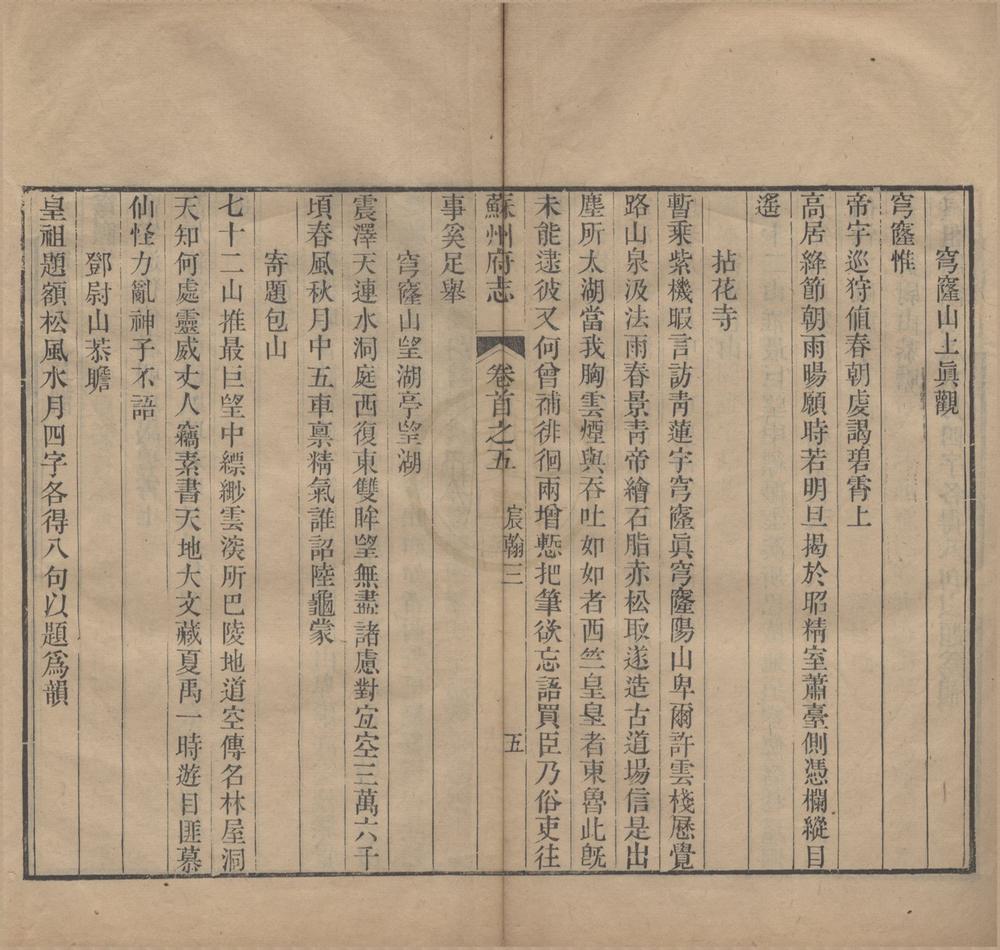 穹窿山上眞觀
穹窿惟
帝宇巡狩值春朝虔謁碧霄上
高居絳節朝雨暘願時若明旦揭於昭精室蕭臺側憑欄縱目
遙
拈花寺
暫乘紫機暇言訪青蓮宇穹窿眞穹窿陽山卑爾許雲棧歷覺
路山泉汲法雨春景青帝繪石脂赤松取遂造古道場信是出
塵所太湖當我胸雲煙與吞吐如如者西竺皇皇者東魯此旣
未能逮彼又何曾補徘徊兩增慙把筆欲忘語買臣乃俗吏往
蘇州府志 卷首之五 宸翰三 五
事奚足舉
穹窿山望湖亭望湖
震澤天連水洞庭西復東雙眸望無盡諸慮對宜空三萬六千
頃春風秋月中五車稟精氣誰詔陸龜蒙
寄題包山
七十二山推最巨望中縹緲雲漢所巴陵地道空傳名林屋洞
天知何處靈威丈人竊素書天地大文藏夏禹一時遊目匪慕
仙怪力亂神子不語
鄧尉山恭瞻
皇祖題額松風水月四字各得八句以題爲韻